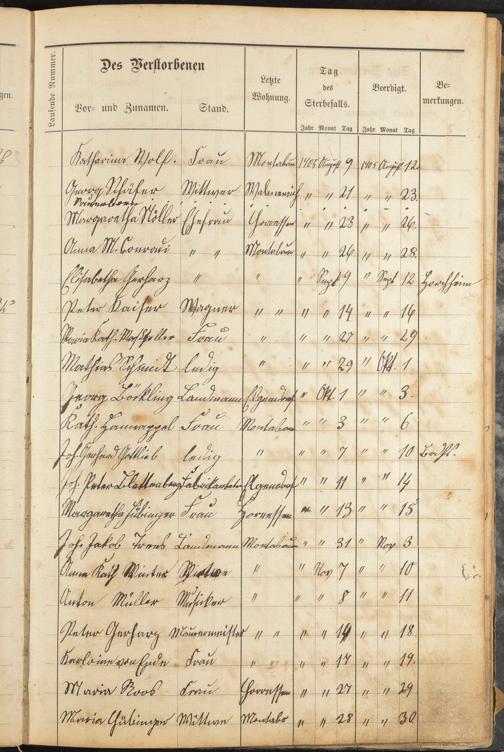 gen.
Laufende Nummer.
Des Verstorbenen
Vor- und Zunamen. Stand.
Letzte Wohnung.
Tag des Sterbefalls.
Beerdigt.
Bemerkungen.
Jahr Monat Tag Jahr Monat Tag
Katharina Wolf. Frau Montabaur 1905 August 9 1905 August 12
Georg Schäfer Wittwer 21 " " 23
Margaretha Ehefrau " " 23 " " 26
Anna M. Conradi " " Montabaur " " 26 " " 28
Elisabetha Gerharz " " " Sept 9 " Sept 12 Horchheim
Peter Kaiser Wagner " " " " 14 " " 16
Maria Kath. Frau " " " 27 " " 29
Mathias Schmidt ledig " " " 29 " Okt. 1
Georg Landmann Elgendorf " Okt. 1 " " 3
Kath. Hannappel Frau Montabaur " " 3 " " 6
Joh. Gerhard Gottlieb ledig " " " 7 " " 10
Joh. Peter Elgendorf " " 11 " " 14
Margaretha Hübinger Frau " " 13 " " 15
Joh. Jakob Landmann Montabaur " " 31 " Nov 3
Anna Kath Winter Witwe " " Nov 7 " " 10
Anton Müller Musiker " " " 8 " " 11
Peter Gerharz Maurermeister " " " " 14 " " 18
Karoline von Ende Frau " " " 17 " " 19.
Maria Roos Frau " " 27 " " 29
Maria Hübinger Wittwe Montabr " " 28 " " 30